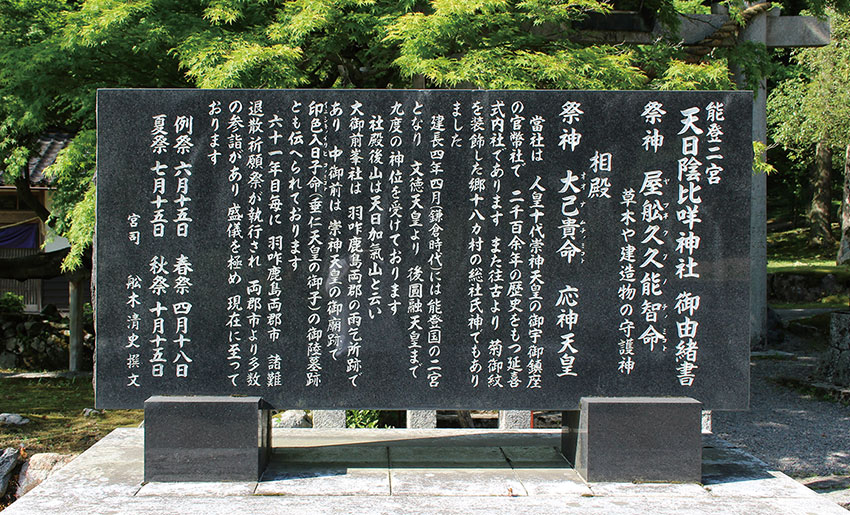 能登二宮
天日陰比咩神社 御由緒書
祭神 屋舩久久能智命
ヤフネククノチノミコト
草木や建造物の守護神
相殿
祭神 大己貴命 応神天皇
オオナムチノミコト
当社は 人皇十代崇神天皇の御宇御鎮座
の官幣社で 二千百余年の歴史をもつ延喜
式内社であります また往古より 菊御紋
を装飾した郷十八カ村の総社氏神でもあり
ました
建長四年四月(鎌倉時代)には能登国の二宮
となり 文徳天皇より 後圓融天皇まで
九度の神位を受けております
社殿後山は天日加氣山と云い
大御前峯社は 羽咋鹿島両郡の雨乞所跡で
あり 中御前は 崇神天皇の御廟跡で
印色入日子命(垂仁天皇の御子)の御陵墓跡
とも伝へられております
六十一年目毎に 羽咋鹿島両郡市 諸難
退散祈願祭が執行され 両郡市より多数
の参詣があり 盛儀を極め 現在に至って
おります
例祭 六月十五日 春祭 四月十八日
夏祭 七月十五日 秋祭 十月十五日
宮司 舩木清史 撰文